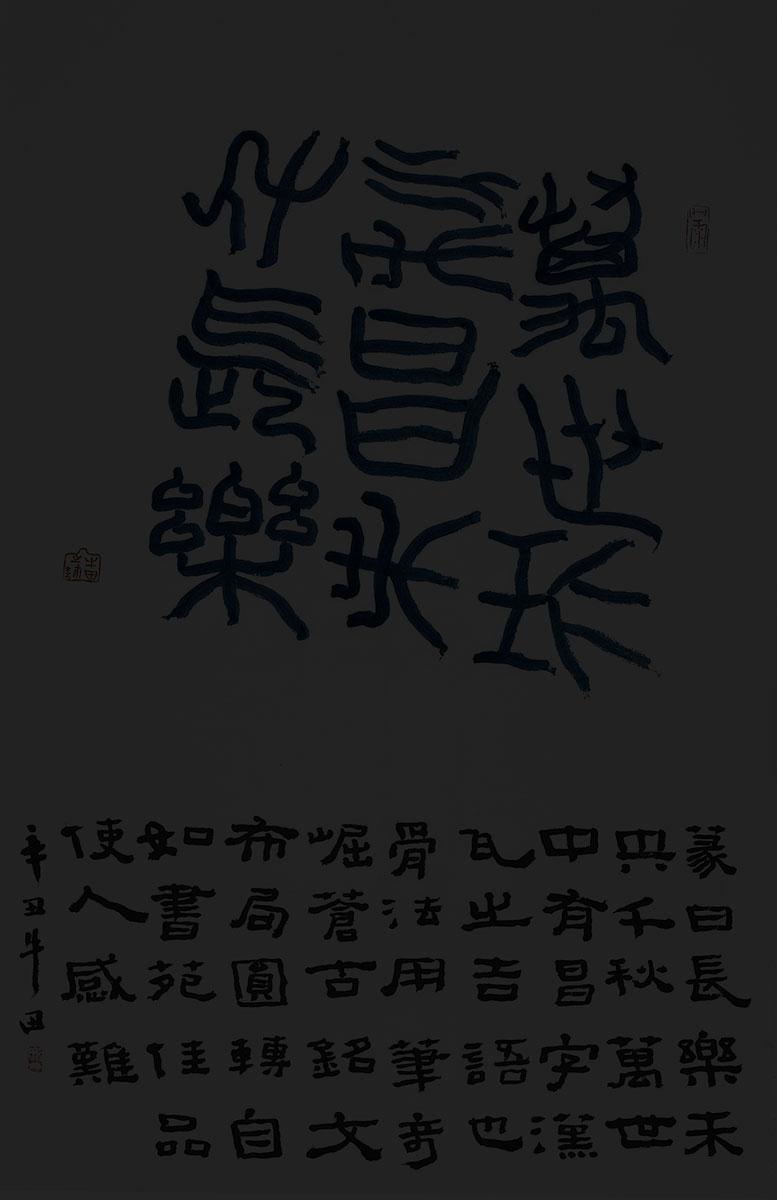 萬世
昌永
長樂
篆曰長樂未
央千秋萬世
中有昌字漢
瓦之吉語也
骨法用筆奇
崛蒼古銘文
布局圓轉自
如書苑佳品
使人感難
辛丑牛田